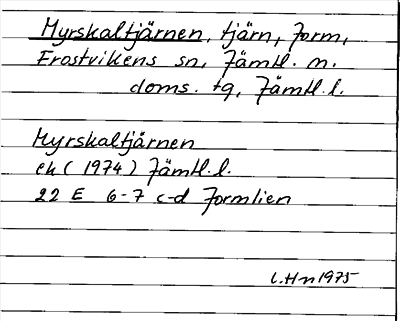 Myrskaltjärnen, tjärn, Form,
Frostvikens sn, Jämtl. n.
doms. tg, Jämtl. l.
Myrskaltjärnen
ek (1974) Jämtl. l.
22 E 6-7 c-d Formlien
C. Hn 1975